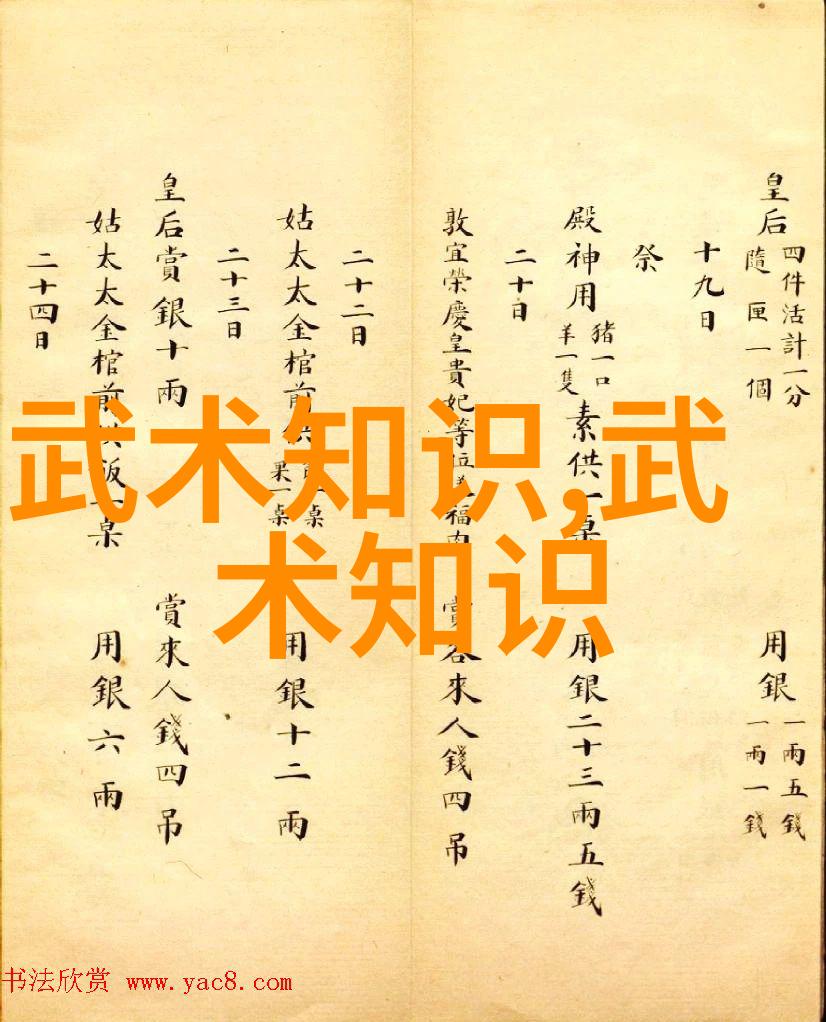 皇后
四件活計一分
隨匣一個
用銀
一兩五錢
一兩一錢
十九日
祭
殿神用
豬一口
羊一隻
素供一桌
用銀二十三兩五錢
二十日
敦宜榮慶皇貴妃等位
福肉
賞
來人錢四吊
二十二日
姑太太金棺前供
一桌
果一桌
用銀十二兩
二十三日
皇后賞銀十兩
賞來人錢四吊
姑太太金棺前供飯一桌
用銀六兩
二十四日
武术知识,武
术知识
书法欣赏 www.yac8.com